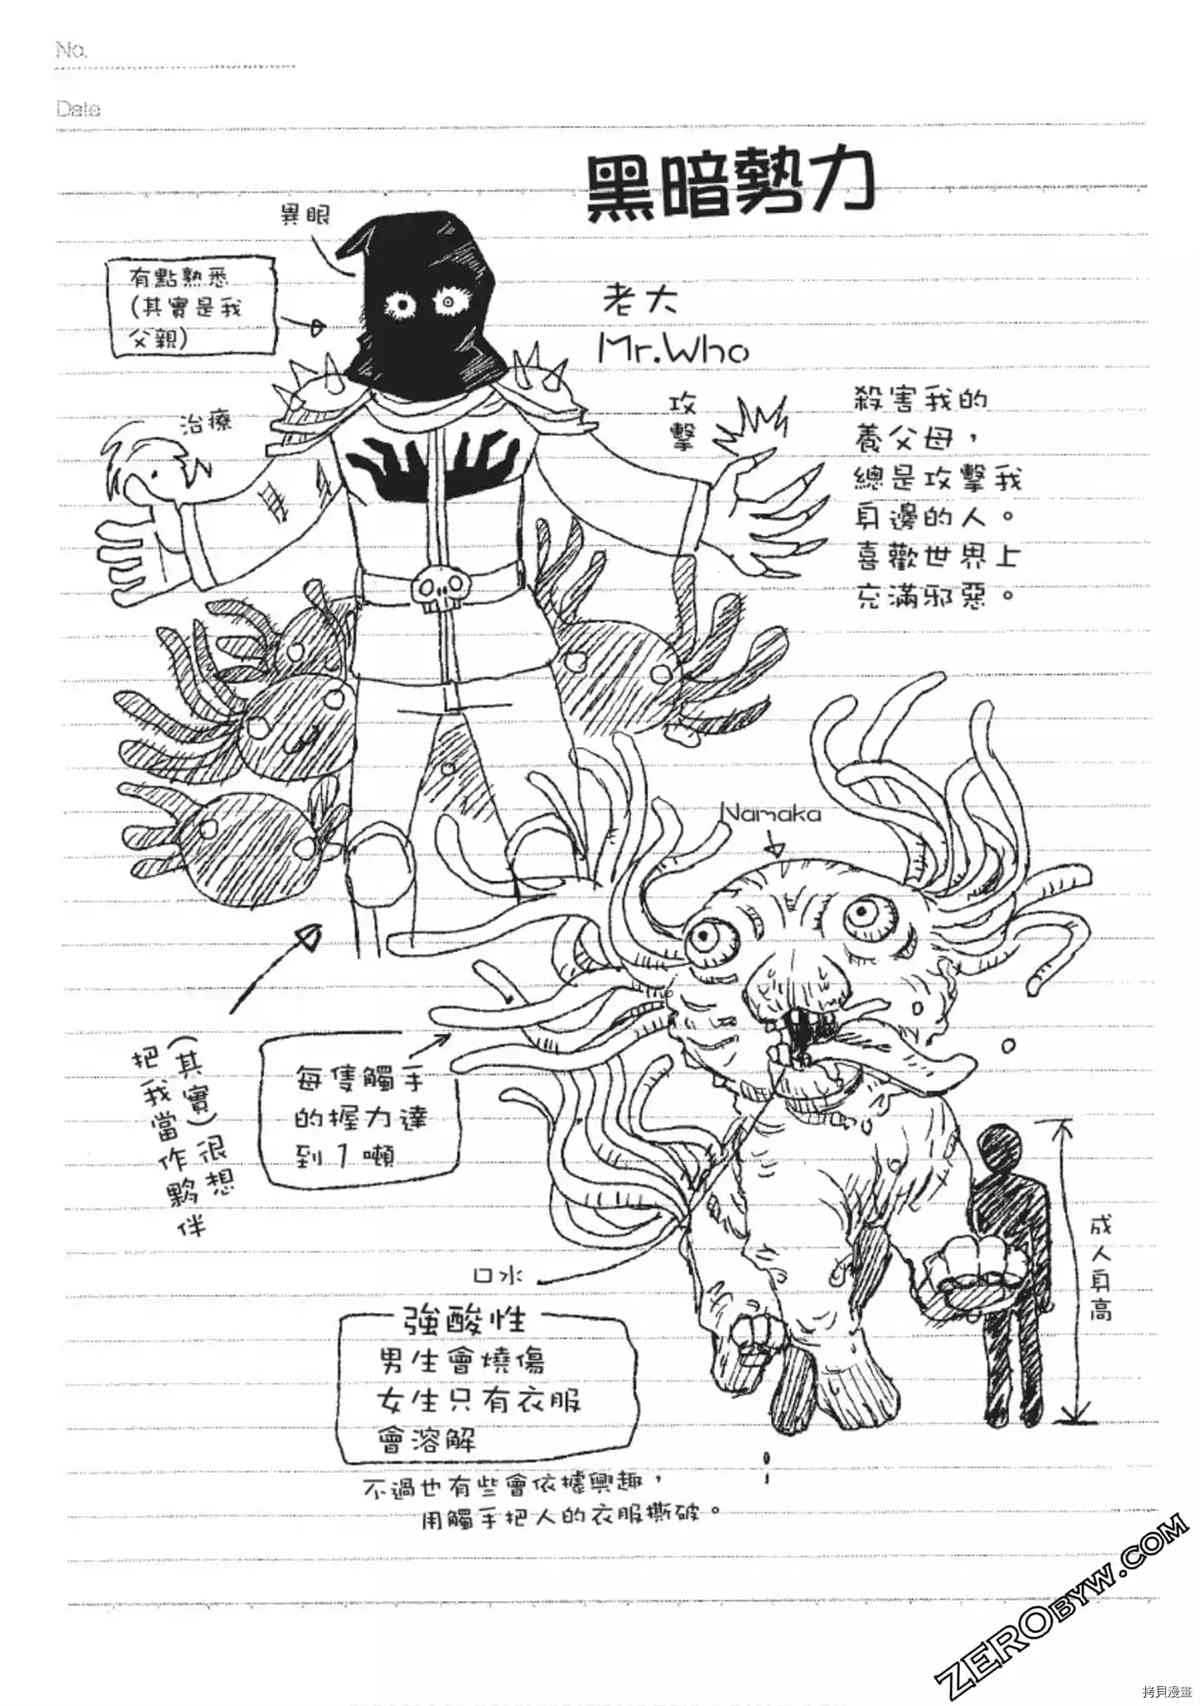 No.
Date
黑暗勢力
異眼
有點熟悉
(其實是我
父親)
老大
Mr.Who
治療
攻
擊
殺害我的
養父母，
總是攻擊我
身邊的人。
喜歡世界上
充滿邪惡。
Namaka
(其實)很想
把我當作夥伴
每隻觸手
的握力達
到1噸
成人身高
口水
強酸性
男生會燒傷
女生只有衣服
會溶解
不過也有些會依據興趣，
用觸手把人的衣服撕破。
ZEROBYW.COM
拷貝漫畫